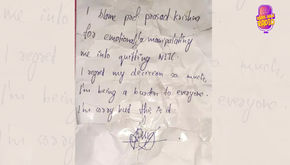 I blame prof. prasad krishna
for emotionally manipulating
me into quitting NITC.
I regret my decision so much.
I'm being a burden to everyone.
I'm sorry but this is it.